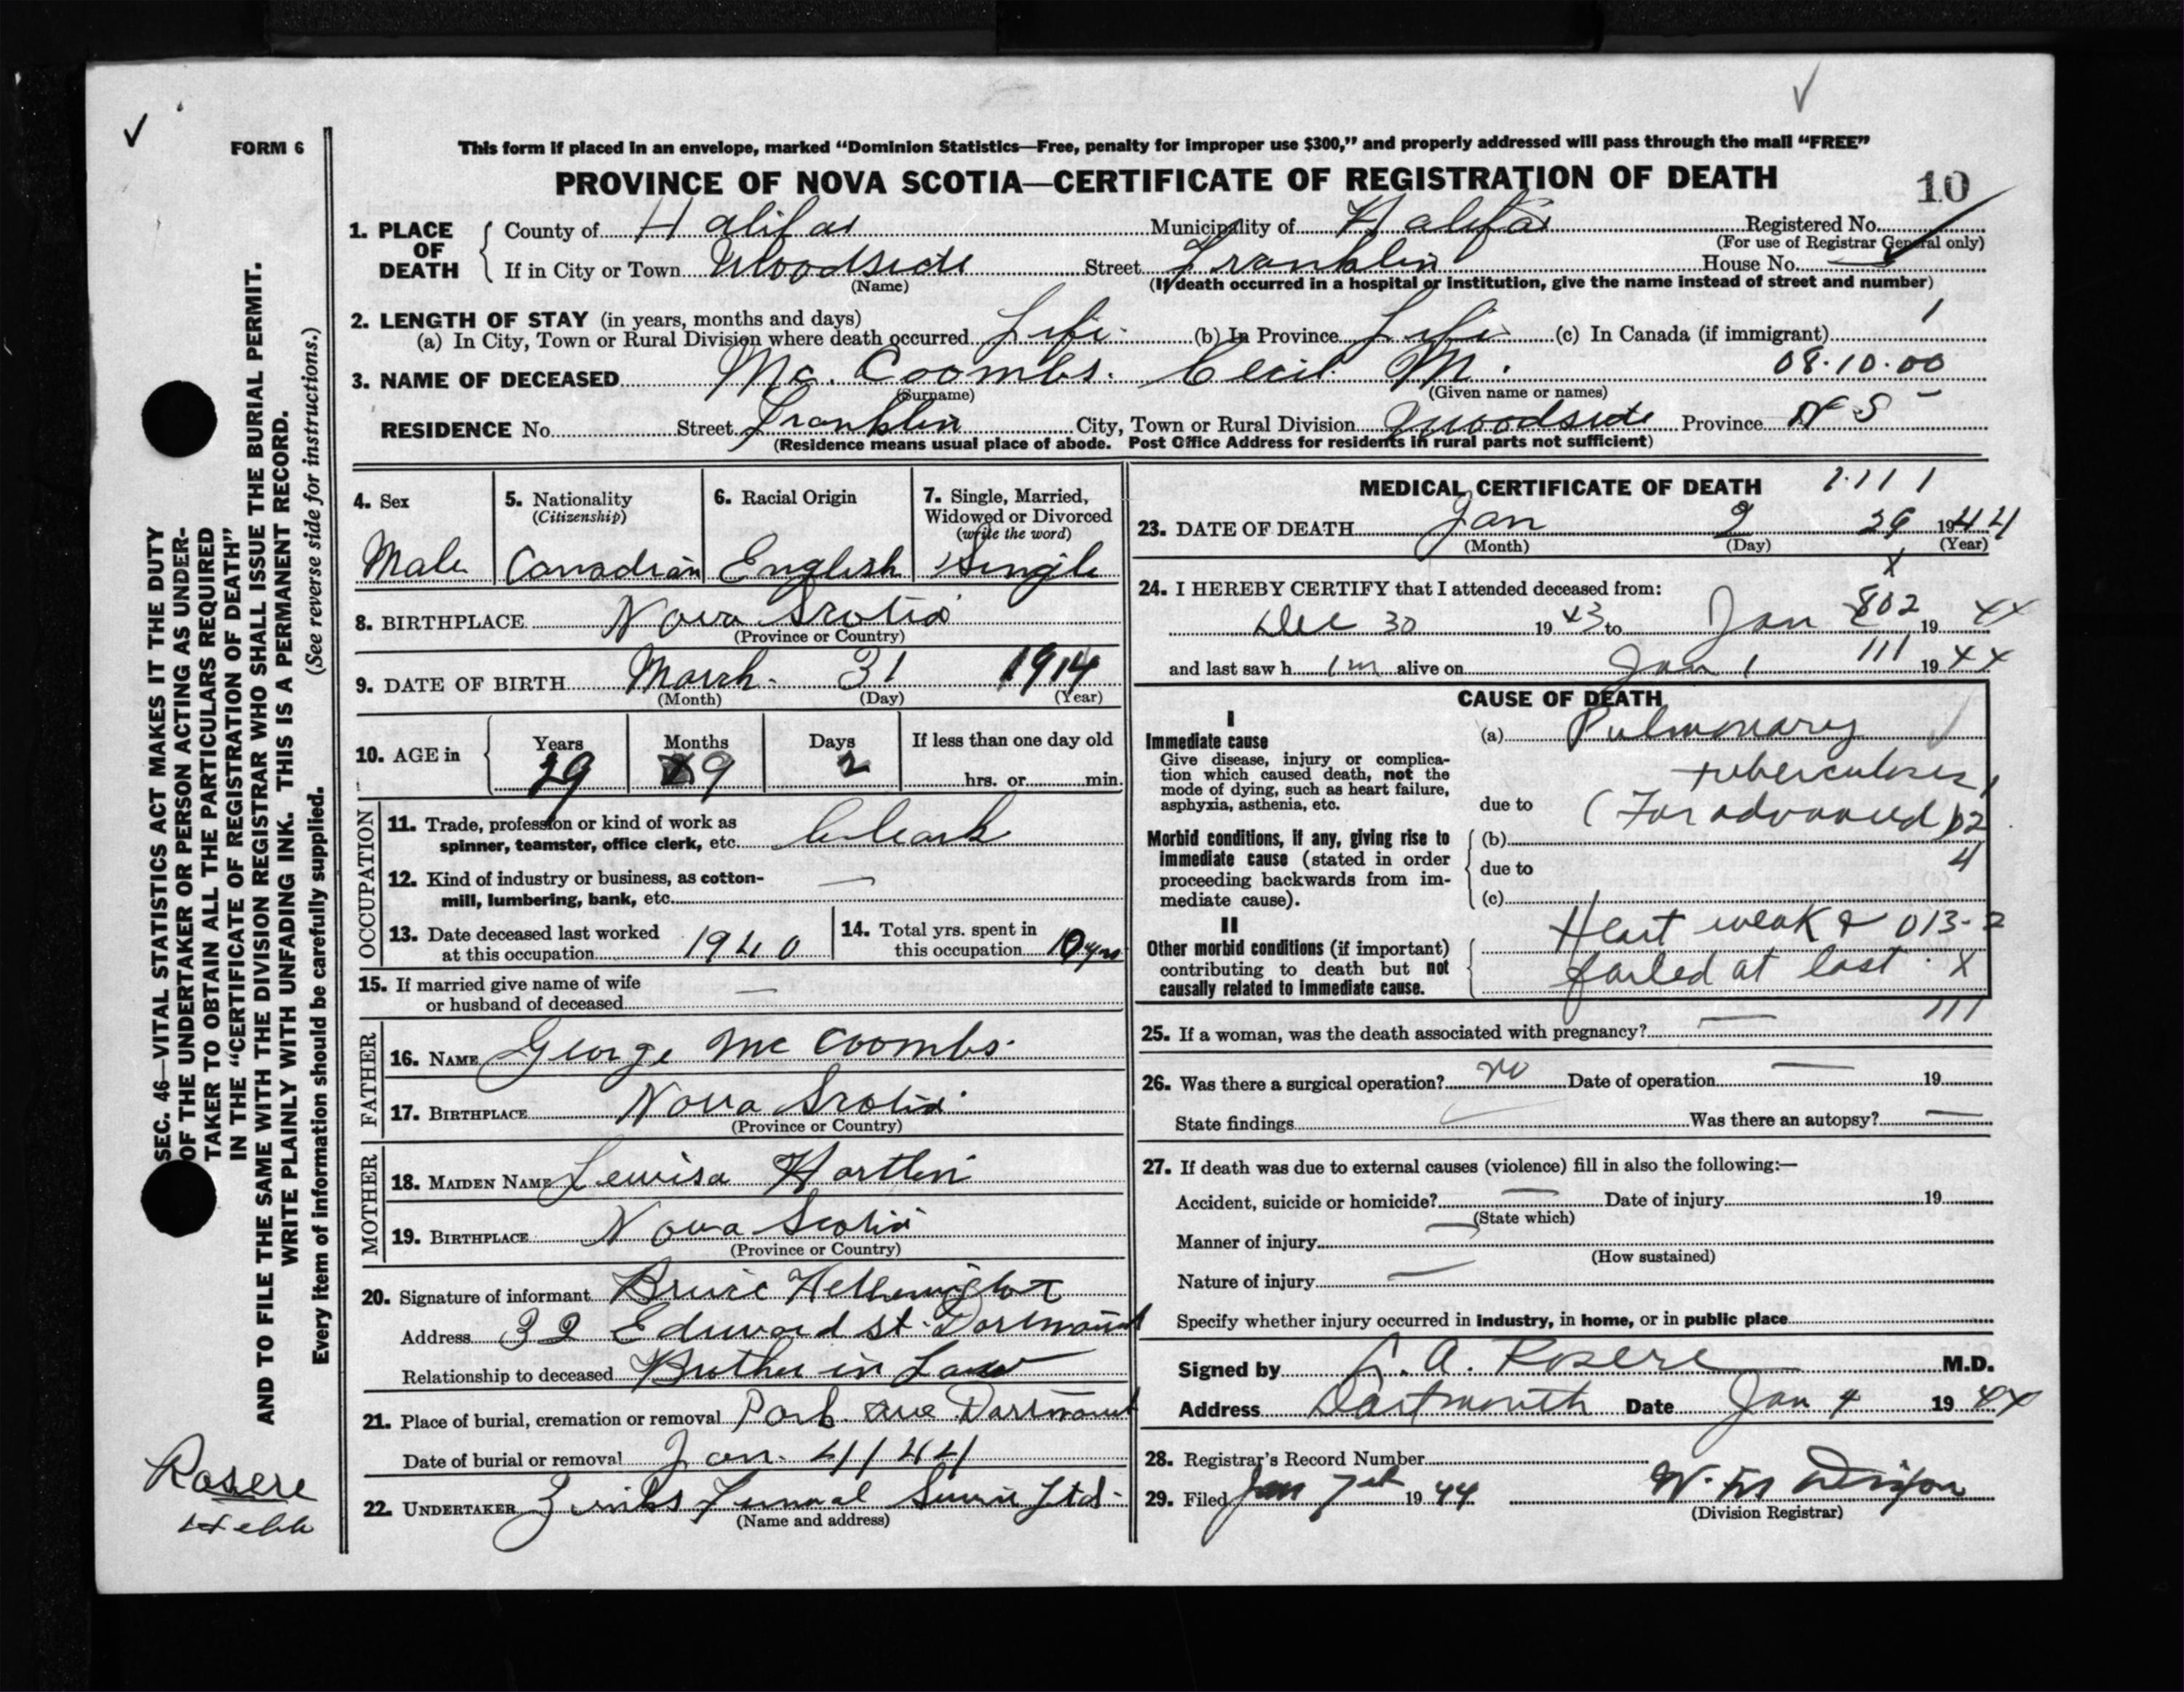 FORM 6
This form if placed in an envelope, marked “Dominion Statistics—Free, penalty for improper use $300,” and properly addressed will pass through the mail “FREE”
PROVINCE OF NOVA SCOTIA—CERTIFICATE OF REGISTRATION OF DEATH
10
1. PLACE OF DEATH
County of Halifax Municipality of Halifax Registered No.
(For use of Registrar General only)
If in City or Town Woodside Street Franklin House No. —
(Name) (If death occurred in a hospital or institution, give the name instead of street and number)
2. LENGTH OF STAY (in years, months and days)
(a) In City, Town or Rural Division where death occurred Life. (b) In Province Life (c) In Canada (if immigrant)
3. NAME OF DECEASED Mc. Coombs. Cecil M. 08.10.00
(Surname) (Given name or names)
RESIDENCE No. Street Franklin City, Town or Rural Division Woodside Province N S
(Residence means usual place of abode. Post Office Address for residents in rural parts not sufficient)
4. Sex
Male
5. Nationality
(Citizenship)
Canadian
6. Racial Origin
English
7. Single, Married,
Widowed or Divorced
(write the word)
Single
8. BIRTHPLACE Nova Scotia
(Province or Country)
9. DATE OF BIRTH March 31 1914
(Month) (Day) (Year)
10. AGE in
Years Months Days If less than one day old
29 9 2 hrs. or min.
OCCUPATION
11. Trade, profession or kind of work as
spinner, teamster, office clerk, etc.
12. Kind of industry or business, as cotton-
mill, lumbering, bank, etc. —
13. Date deceased last worked
at this occupation 1940
14. Total yrs. spent in
this occupation 10 yrs
15. If married give name of wife
or husband of deceased —
FATHER
16. NAME George Mc Coombs.
17. BIRTHPLACE Nova Scotia
(Province or Country)
MOTHER
18. MAIDEN NAME Lewisa Hartlin
19. BIRTHPLACE Nova Scotia
(Province or Country)
20. Signature of informant Bruce
Address 32 Edward st.
Relationship to deceased Brother in Law
21. Place of burial, cremation or removal Park ave
Date of burial or removal Jan. 4/44
22. UNDERTAKER Zinks Funeral Ltd.
(Name and address)
MEDICAL CERTIFICATE OF DEATH 1.111
23. DATE OF DEATH Jan 2 29 1944
(Month) (Day) (Year)
24. I HEREBY CERTIFY that I attended deceased from:
Dec 30 1943 to Jan 802 1944
and last saw him alive on Jan 1 111 1944
CAUSE OF DEATH
I
Immediate cause
Give disease, injury or complica-
tion which caused death, not the
mode of dying, such as heart failure,
asphyxia, asthenia, etc.
(a) Pulmonary
tuberculosis
due to (Far advanced) 02
Morbid conditions, if any, giving rise to
immediate cause (stated in order
proceeding backwards from im-
mediate cause).
(b)
due to 4
(c)
II
Other morbid conditions (if important)
contributing to death but not
causally related to immediate cause.
Heart weak & 013-2
failed at last. X
111
25. If a woman, was the death associated with pregnancy? —
26. Was there a surgical operation? no Date of operation — 19
State findings Was there an autopsy? —
27. If death was due to external causes (violence) fill in also the following:—
Accident, suicide or homicide? — Date of injury 19
(State which)
Manner of injury —
(How sustained)
Nature of injury —
Specify whether injury occurred in industry, in home, or in public place
Signed by A. Rosere M.D.
Address Dartmouth Date Jan 4 1944
28. Registrar's Record Number
29. Filed Jan 7th 1944
(Division Registrar)
SEC. 46—VITAL STATISTICS ACT MAKES IT THE DUTY
OF THE UNDERTAKER OR PERSON ACTING AS UNDER-
TAKER TO OBTAIN ALL THE PARTICULARS REQUIRED
IN THE “CERTIFICATE OF REGISTRATION OF DEATH”
AND TO FILE THE SAME WITH THE DIVISION REGISTRAR WHO SHALL ISSUE THE BURIAL PERMIT.
WRITE PLAINLY WITH UNFADING INK. THIS IS A PERMANENT RECORD.
Every item of information should be carefully supplied. (See reverse side for instructions.)
Rosere